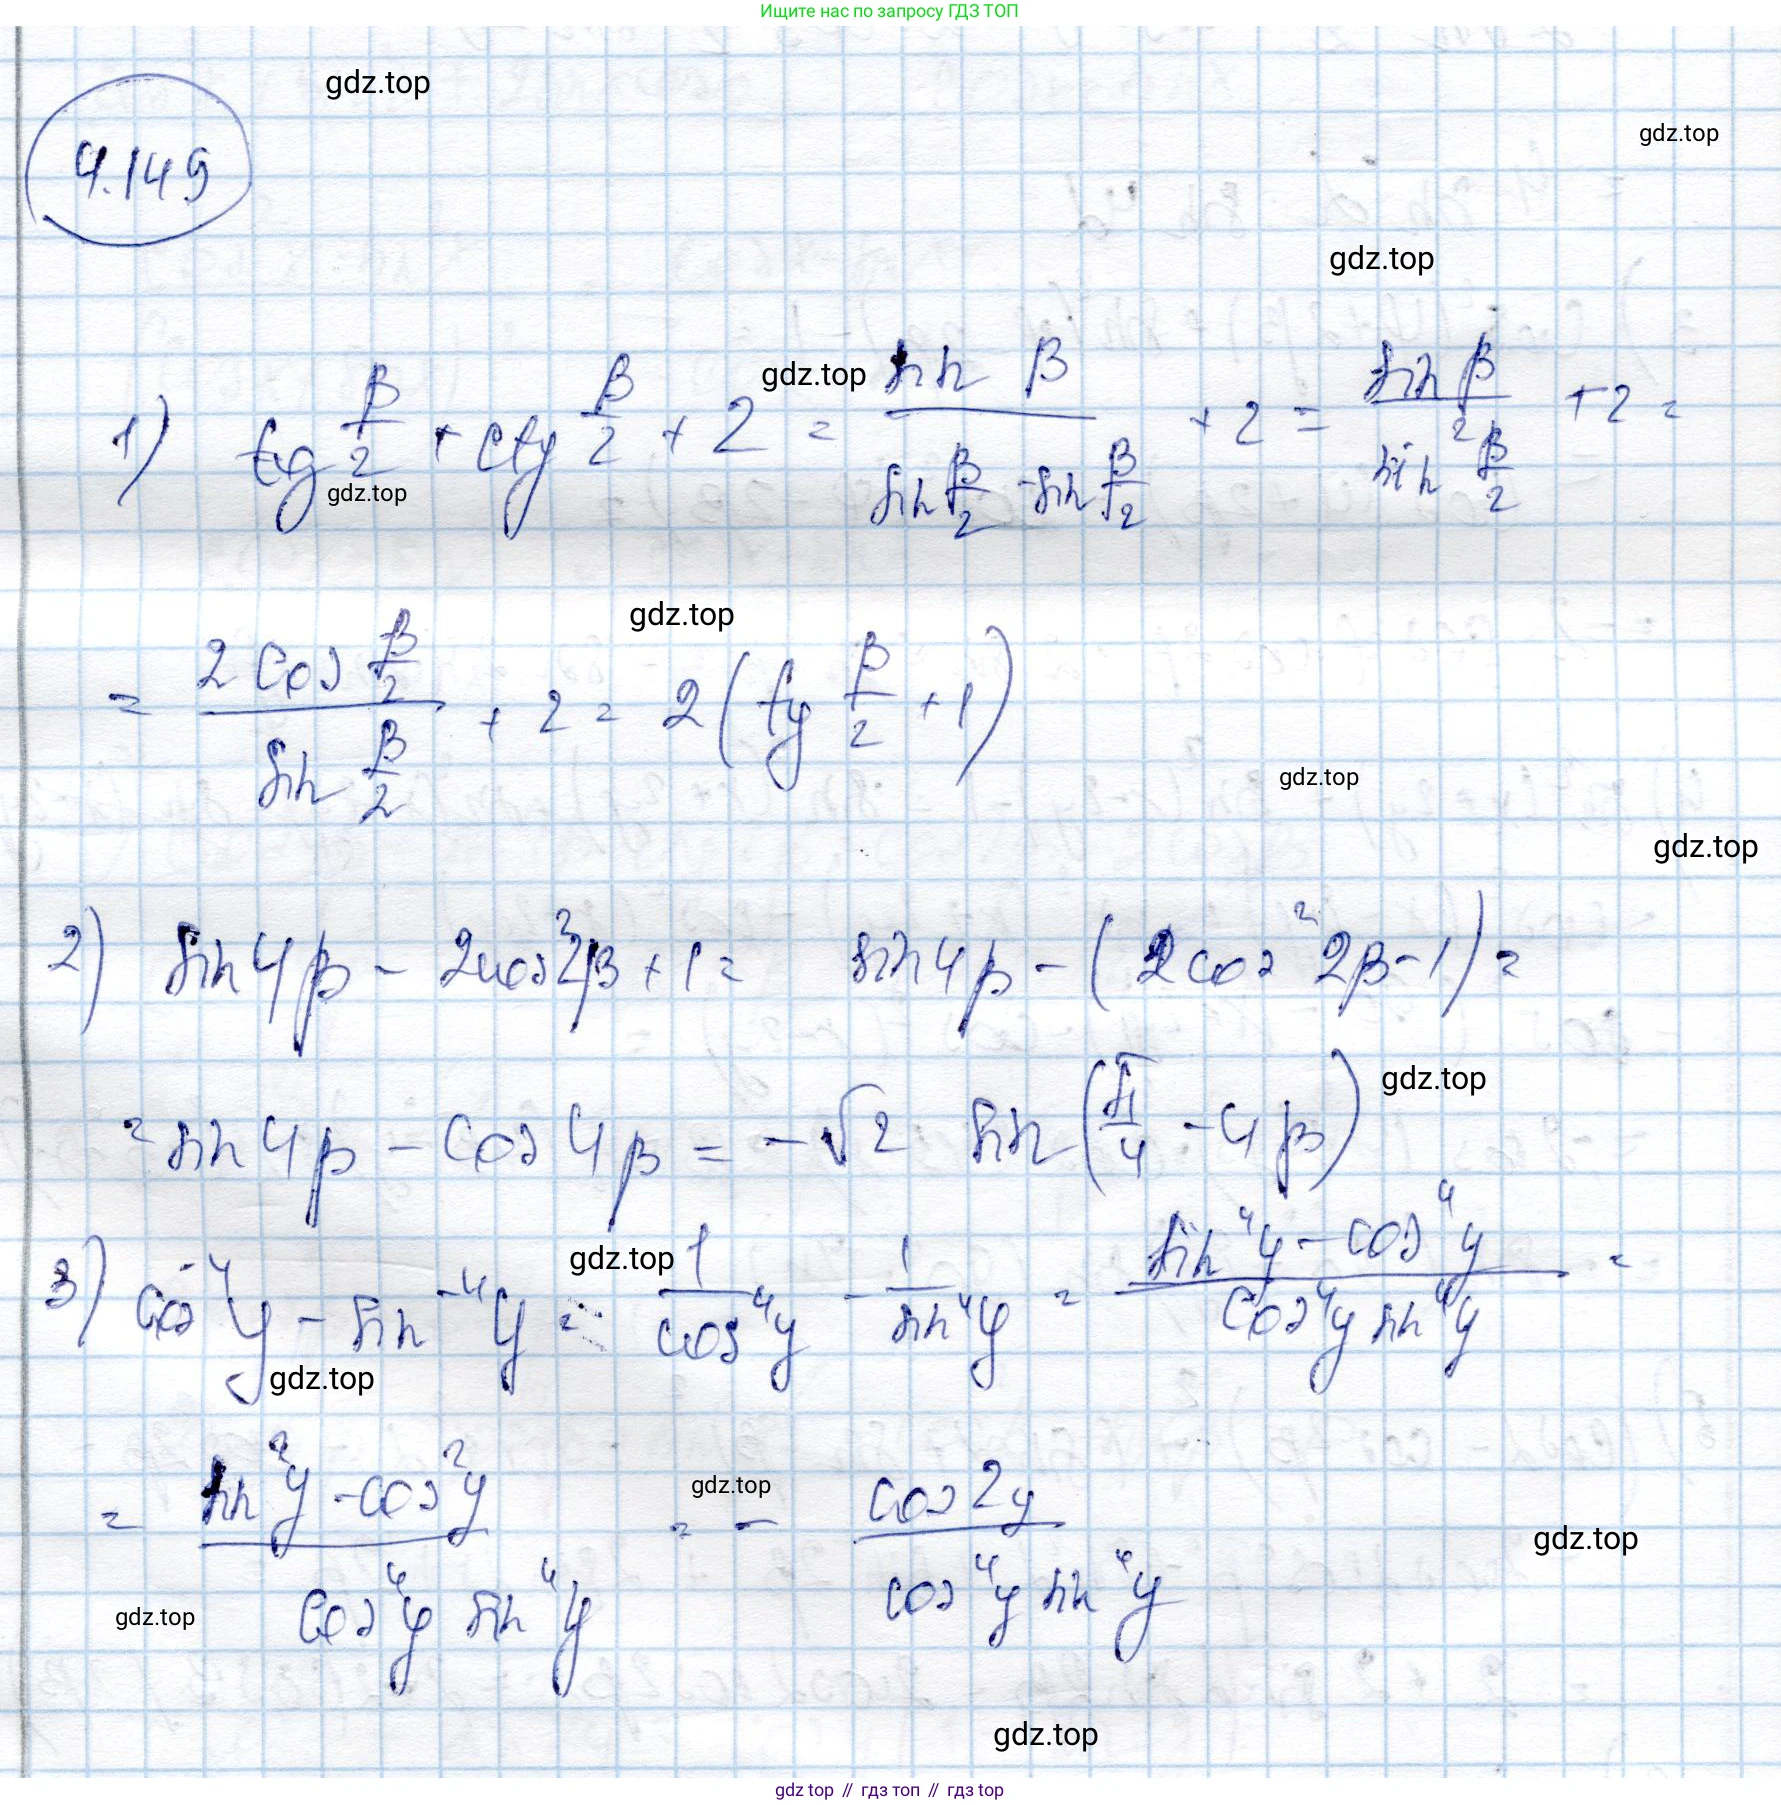 Ищите нас по запросу ГДЗ ТОП
gdz.top
4.149
gdz.top
gdz.top
1) tg β/2 + ctg β/2 + 2 = sin β / (sin β/2 · sin β/2) + 2 = sin β / 2 / sin β/2 + 2 =
gdz.top
gdz.top
= 2 cos β/2 / sin β/2 + 2 = 2 (tg β/2 + 1)
gdz.top
gdz.top
gdz.top
2) sin 4β - 2cos² 2β + 1 = sin 4β - (2cos² 2β - 1) =
= sin 4β - cos 4β = -√2 sin (π/4 - 4β)
gdz.top
3) cos⁻⁴ y - sin⁻⁴ y = 1 / cos⁴ y - 1 / sin⁴ y = (sin⁴ y - cos⁴ y) / (cos⁴ y sin⁴ y) =
gdz.top
gdz.top
= (sin² y - cos² y) / (cos⁴ y sin⁴ y) = - cos 2y / (cos⁴ y sin⁴ y)
gdz.top
gdz.top
gdz.top
gdz.top
gdz top // гдз топ // гдз top